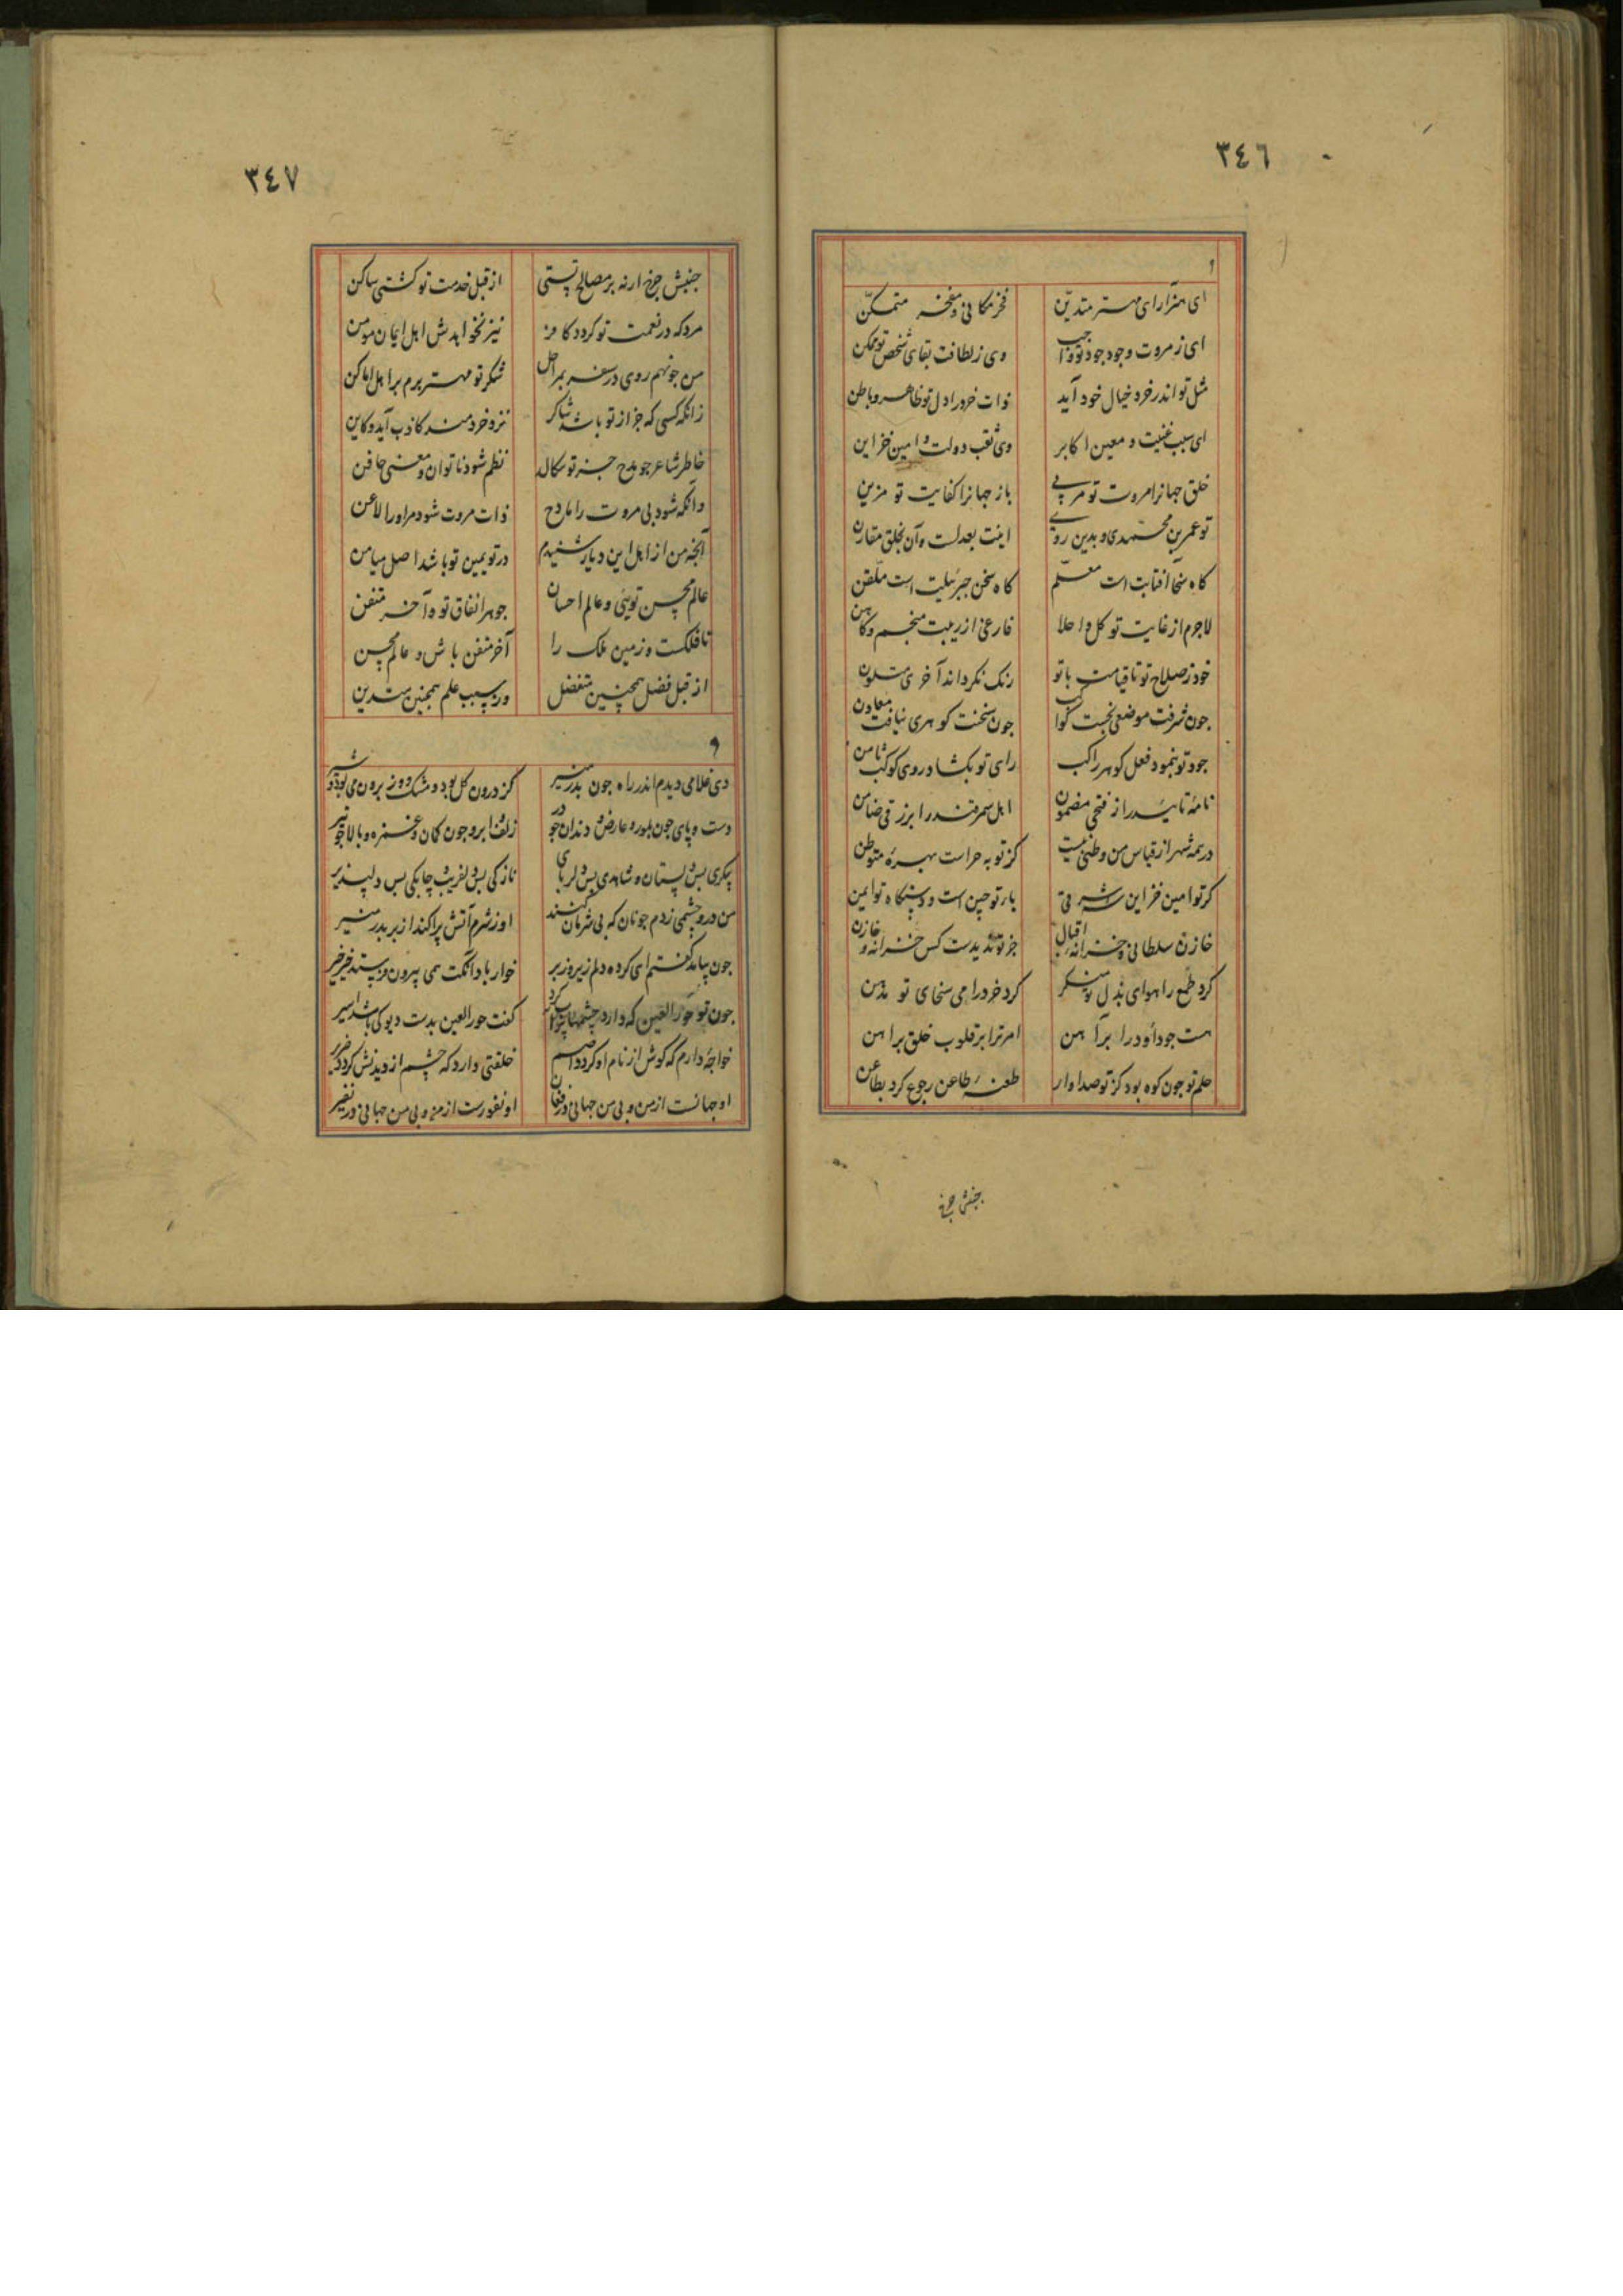 ٣٤٦
ای هنرآرای مهتر متدیّن فخر مکانی و مفخر متمکّن
ای ز مروت وجود جود تو واجب وی ز لطافت بقای شخص تو ممکن
مثل تو اندر خرد خیال خود آید ذات خرد را دل تو ظاهر و باطن
ای سبب غنیت و معین اکابر وی ثقب دولت و امین خزاین
خلق جهانرا مروت تو مربی باز جهانرا کفایت تو مزین
تو عمر بن محمدی و بدین روی اینت بعدلست و آن بخلق مقارن
کاه سخا آفتابت است معلّم کاه سخن جبرئیلت است ملّقن
لاجرم از غایت تو کل و احلا فارغی از ریبت منجم و کاهن
خود ز صلاح تو تا قیامت با تو رنک نکرداند آخری متلون
جون شرفت موضعی نجست کواکب جون سخنت کوهری نیافت معادن
جود تو بنمود فعل کوهر راکب رای تو بکشاد روی کوکب ثامن
نامهٔ تائید را ز فتحی مضمون اهل سمرقند را برزقی ضامن
در همه شهر از قیاس من وطنی نیست کز تو به حراست بهرهٔ متوطن
کر تو امین خزاین شرقی یار تو جین است و دستکاه تو ایمن
خازن سلطانی و خزانهٔ اقبال جز تو ندیدست کس خزانه و خازن
کرد طمع را هوای بذل تو منکر کرد خرد را می سخای تو مدمن
هست جو داود را برآهن امر ترا بر قلوب خلق براهن
حلم تو جون کوه بود کز تو صداوار طعنهٔ طاعن رجوع کرد بطاعن
جنبش جرخ
٣٤٧
جنبش جرخ ار نه بر مصالح تستی از قبل خدمت تو کشتی ساکن
مرد که در نعمت تو کردد کافر نیز نخواهدش اهل ایمان مومن
من جو نهم روی در سفر بمراحل شکر تو مهتر برم بر اهل اماکن
زانکه کسی که جز از تو باشد شاکر نزد خردمند کاذب آید و کاین
خاطر شاعر جو مدح جز تو سکالد نظم شود ناتوان و معنی حافن
وانکه شود بی مروت را مادح ذات مروت شود مر او را لاعن
آنجه من از اهل این دیار شنیدم در تو یمین تو باشد اصل میامن
عالم محسن تویی و عالم احسان جوهر انفاق تو و آخر متفن
تا فلکست و زمین ملک را آخر متفن باش و عالم محسن
از قبل فضل همجنین متفضل وز سبب علم همجنین متدین
دی غلامی دیدم اندر راه جون بدر منیر کز درون کل بود و مشک و وز برون می بود و شیر
دست و پای جون بلور و عارض و دندان جو در زلف و ابرو جون کمان و غمزه و بالا جو تیر
پیکری بس دلستان و شاهدی بس دلربای نازکی بس دلفریب و جابکی بس دلپذیر
من درو جشمی زدم جونان که بی شرمان کنند او ز شرم آتش پراکند از بر بدر منیر
جون بیامد کفتم ای کرده دلم زیر و زبر خوار بادا آنکت همی بیرون فرستد خیر خیر
جون تو حورالعین که دارد جشمها پر خواب کرد کفت حورالعین بدست دیو کی باشد اسیر
خواجهٔ دارم که کوش از نام او کردد اصم خلقتی دارد که جشم از دیدنش کردد ضریر
او جهانست از من و بی من جهانی در فغان او نفورست از من و بی من جهانی در نفیر